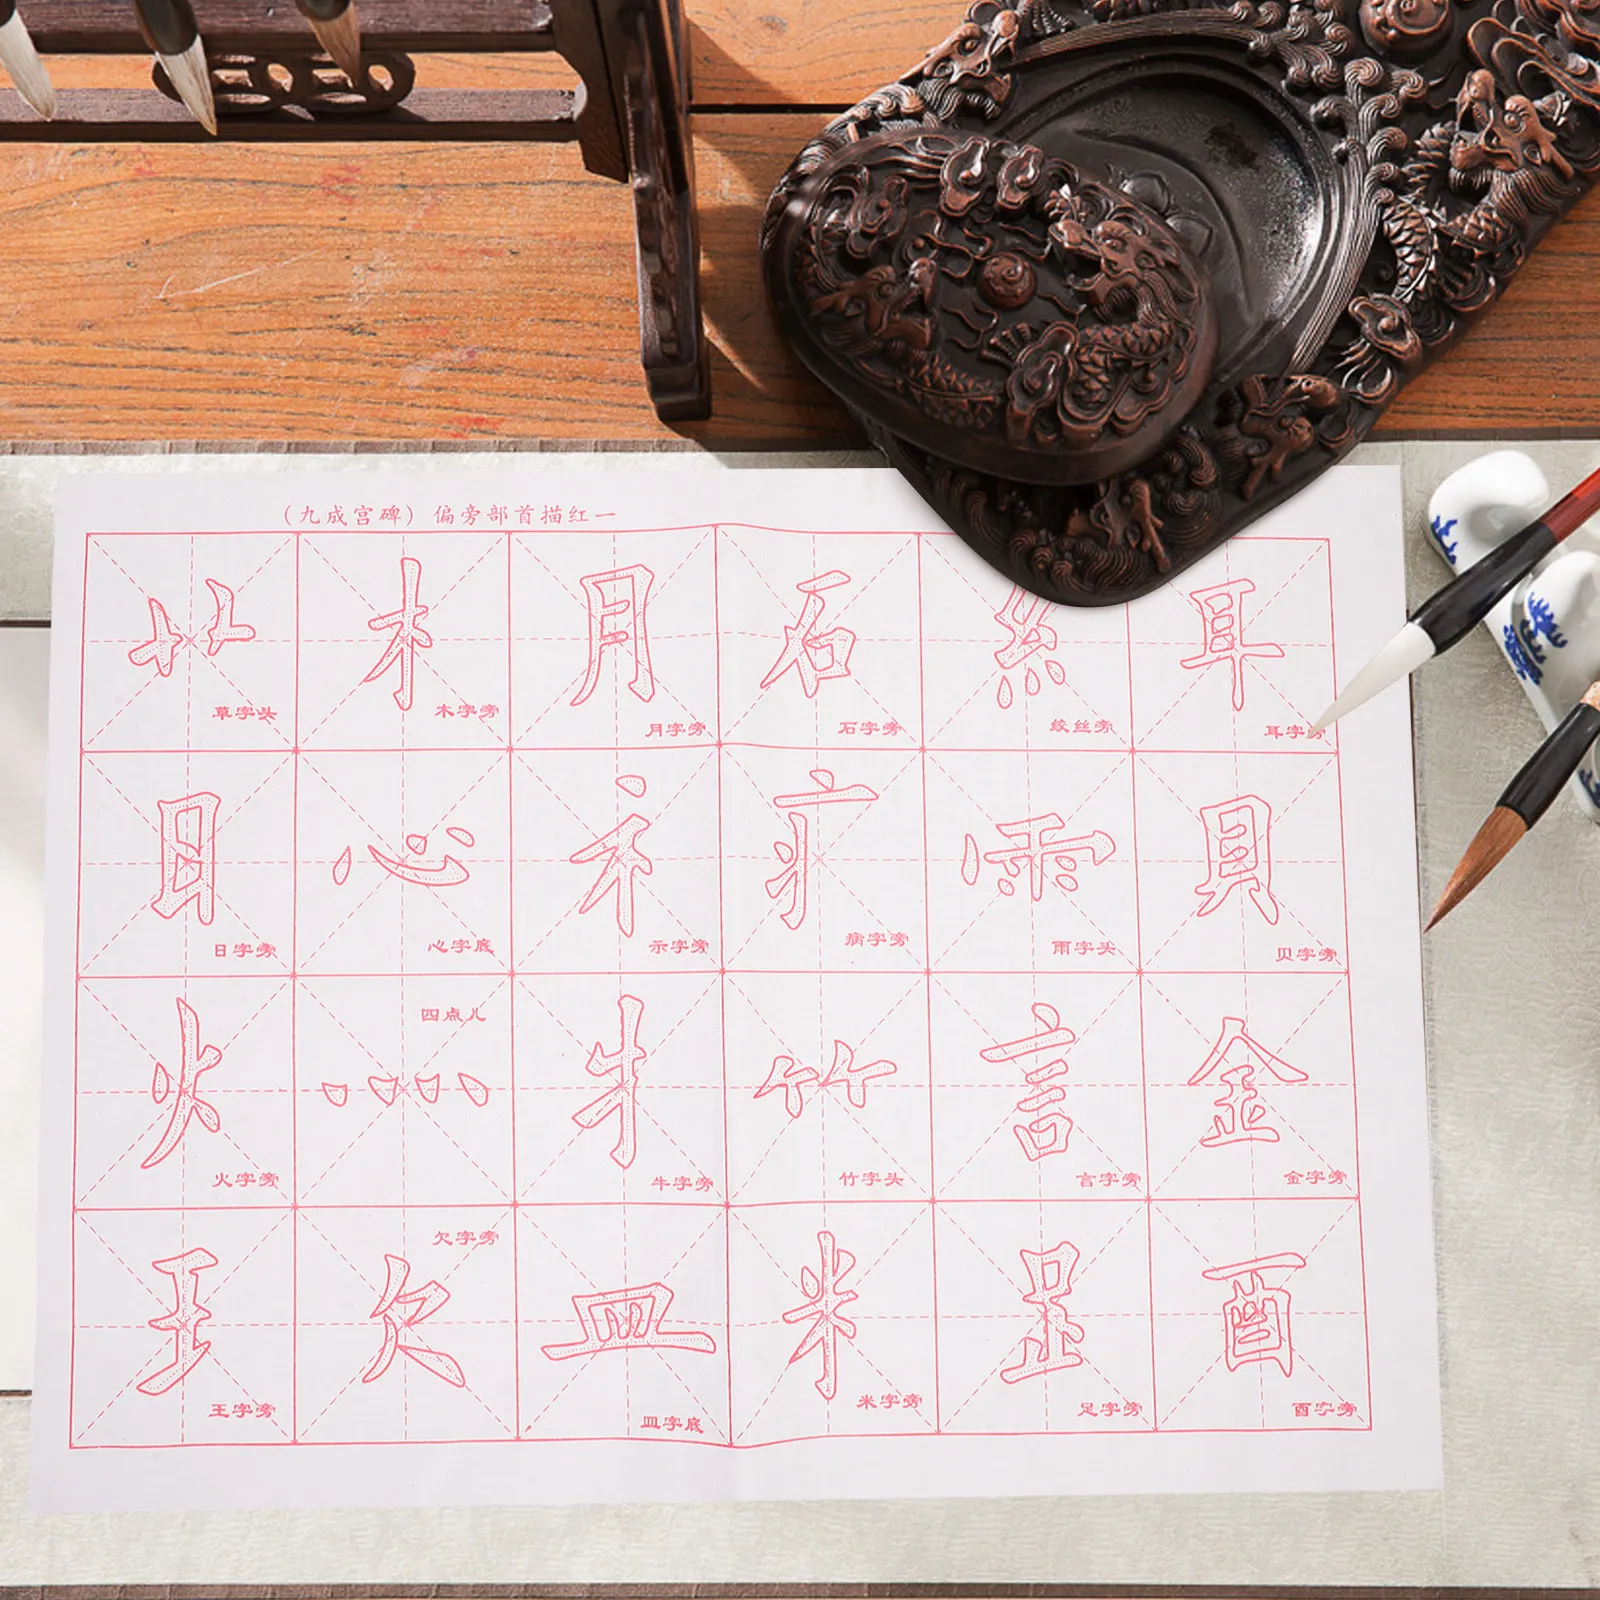 （九成宫碑）偏旁部首描红一
艹 木 月 石 糹 耳
草字头 木字旁 月字旁 石字旁 绞丝旁 耳字旁
日 心 礻 疒 雨 貝
日字旁 心字底 示字旁 病字旁 雨字头 贝字旁
四点儿
火 灬 牜 ⺮ 言 金
火字旁 牛字旁 竹字头 言字旁 金字旁
欠字旁
王 欠 皿 米 𧾷 酉
王字旁 皿字底 米字旁 足字旁 酉字旁